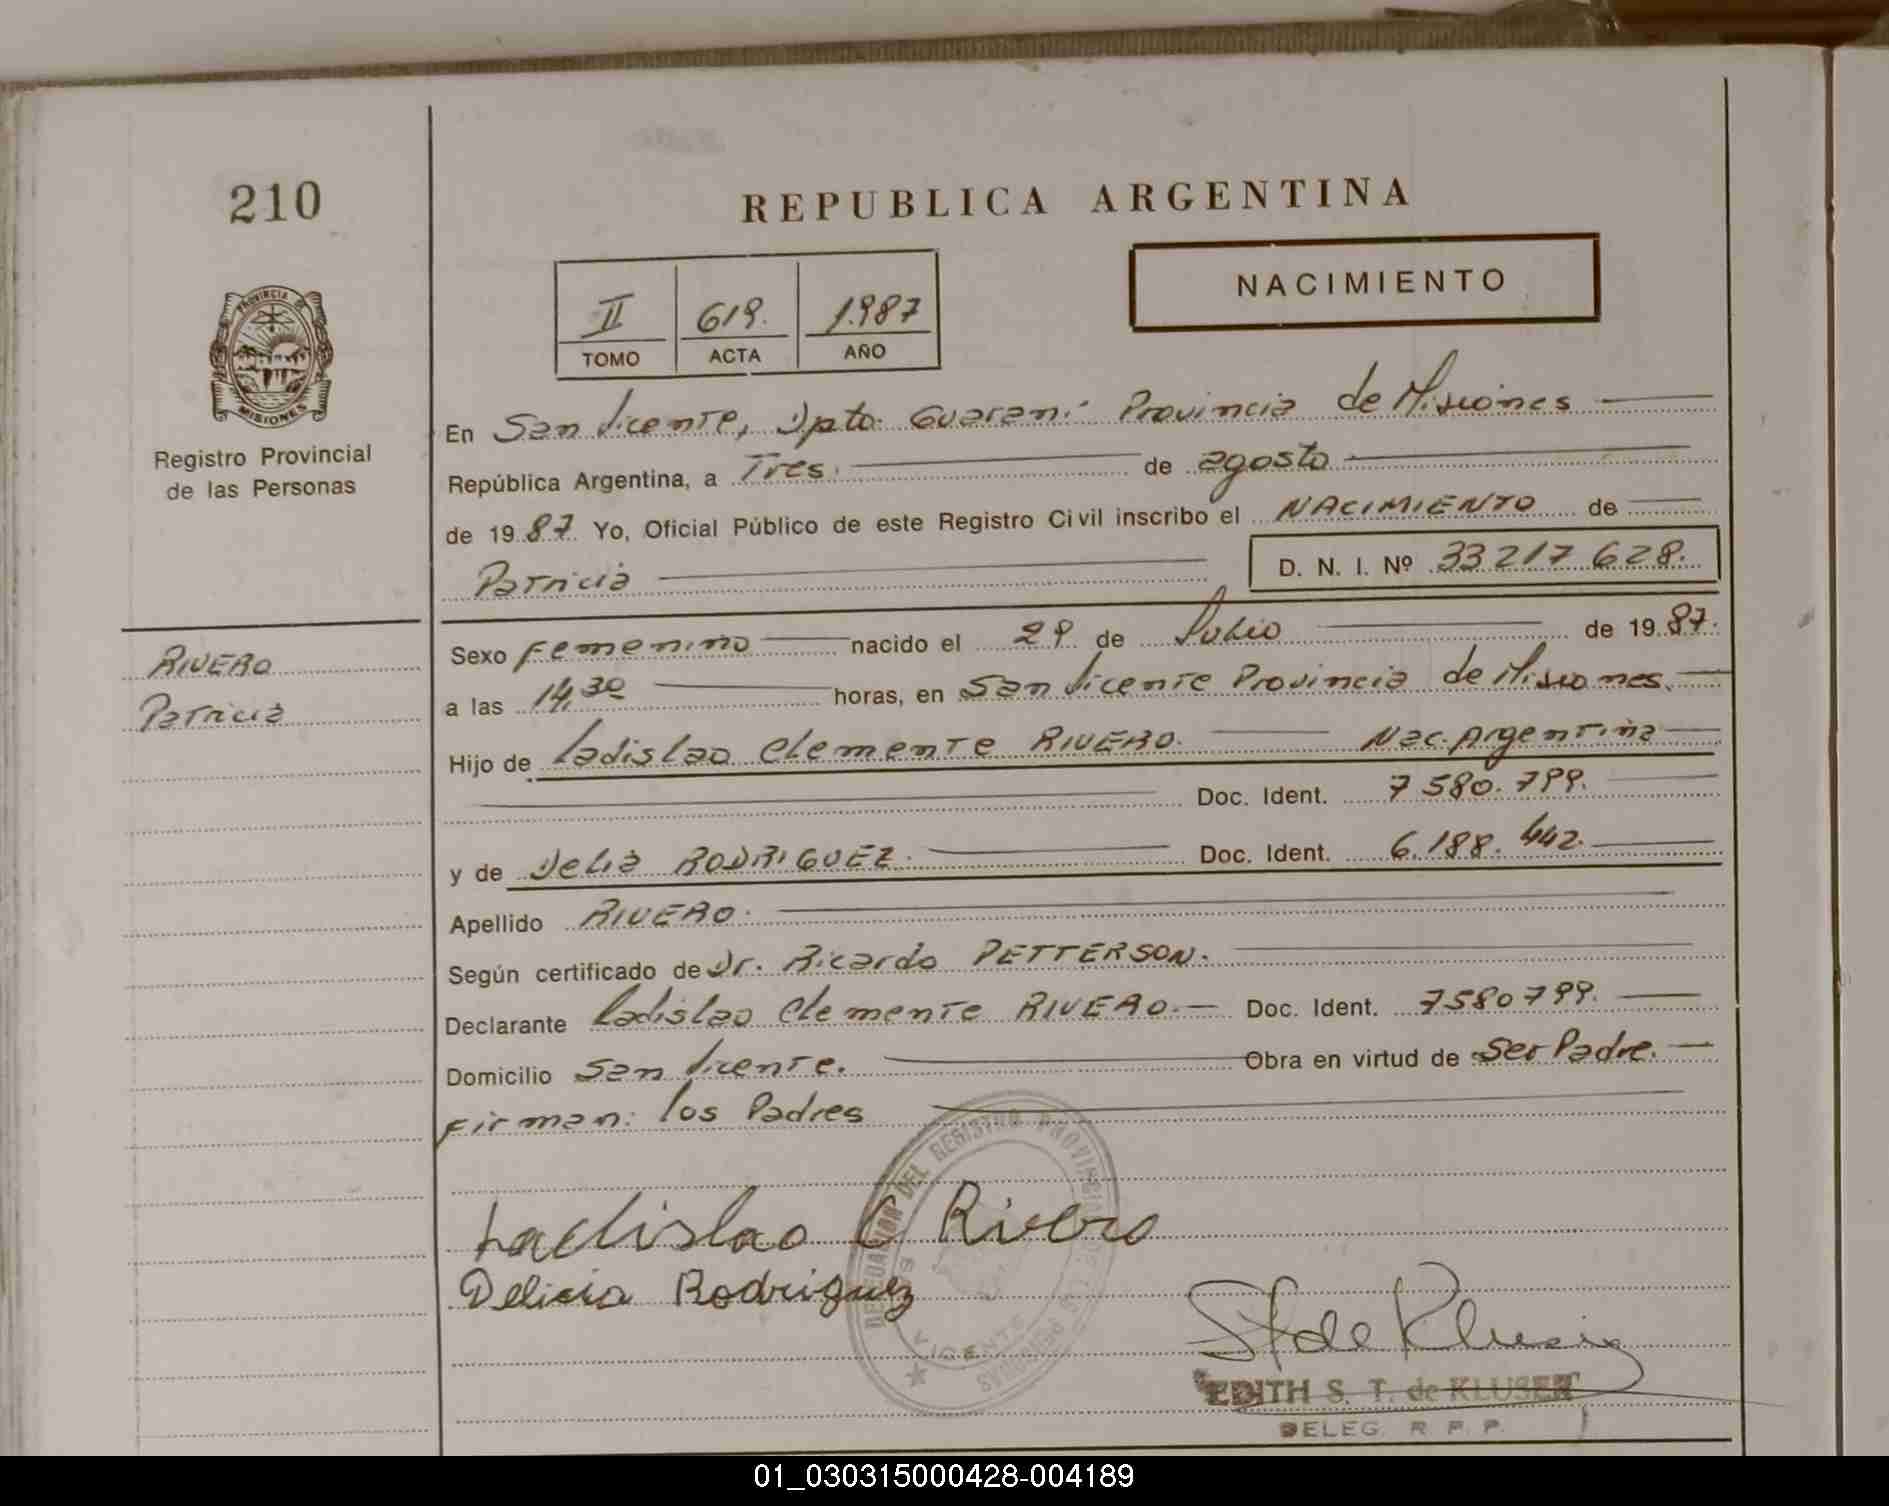 210
REPUBLICA ARGENTINA
NACIMIENTO
II 619. 1.987
TOMO ACTA AÑO
PROVINCIA DE
MISIONES
Registro Provincial
de las Personas
En San Vicente, Dpto. Guaraní Provincia de Misiones
República Argentina, a Tres. de agosto
de 19 87 Yo, Oficial Público de este Registro Civil inscribo el NACIMIENTO de
Patricia D. N. I. Nº 33 217 628.
RIVERO
Patricia
Sexo Femenino nacido el 29 de Julio de 19 87.
a las 14,30 horas, en San Vicente Provincia de Misiones.
Hijo de Ladislao Clemente RIVERO. Nac. Argentina
Doc. Ident. 7 580. 799.
y de Delia RODRIGUEZ. Doc. Ident. 6.188. 442.
Apellido RIVERO.
Según certificado de Dr. Ricardo PETTERSON.
Declarante Ladislao Clemente RIVERO. Doc. Ident. 7580799.
Domicilio San Vicente. Obra en virtud de Ser Padre.
Firman: los Padres
Ladislao C Rivero
Delicia Rodriguez
DELEGACION DEL REGISTRO PROVINCIAL DE LAS PERSONAS
VICENTE
EDITH S. T. de KLUSER
DELEG. R. P. P.
01_030315000428-004189